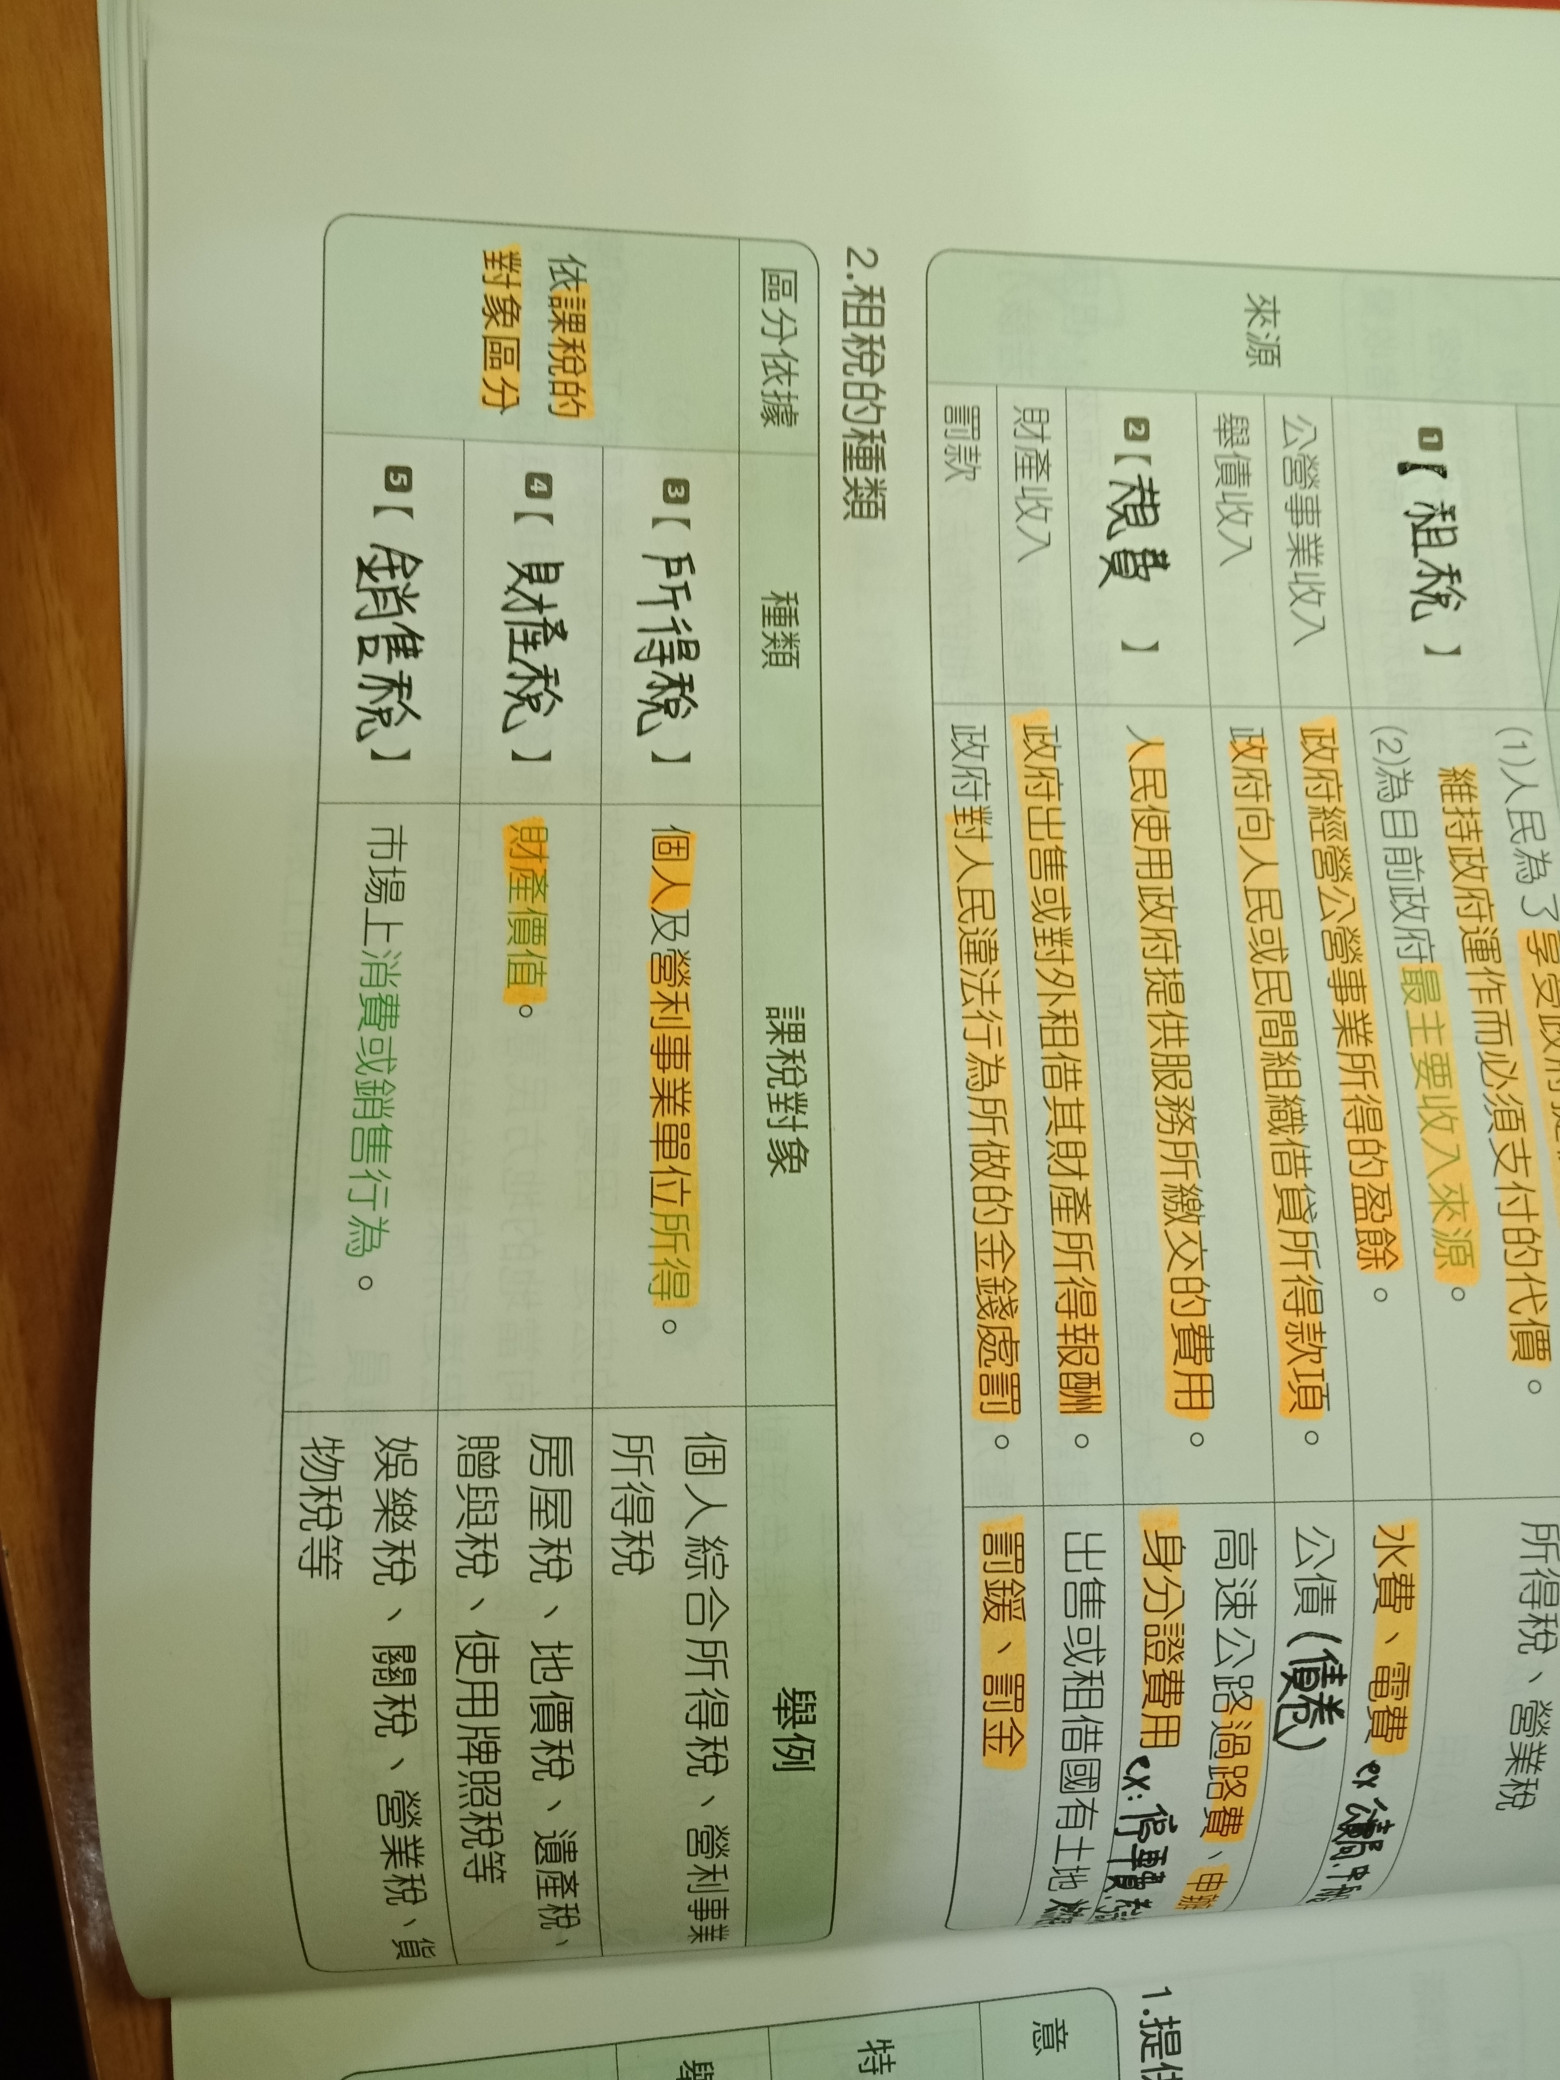 來源
1【租稅】
(1)人民為了享受政府提
維持政府運作而必須支付的代價。
(2)為目前政府最主要收入來源。
所得稅、營業稅
公營事業收入
政府經營公營事業所得的盈餘。
水費、電費 ex
舉債收入
政府向人民或民間組織借貸所得款項。
公債(債卷)
2【規費】
人民使用政府提供服務所繳交的費用。
高速公路過路費、申辦
身分證費用 ex:停車費.
財產收入
政府出售或對外租借其財產所得報酬。
出售或租借國有土地
罰款
政府對人民違法行為所做的金錢處罰。
罰鍰、罰金
2.租稅的種類
區分依據
種類
課稅對象
舉例
依課稅的
對象區分
3【所得稅】
個人及營利事業單位所得。
個人綜合所得稅、營利事業
所得稅
4【財產稅】
財產價值。
房屋稅、地價稅、遺產稅、
贈與稅、使用牌照稅等
5【銷售稅】
市場上消費或銷售行為。
娛樂稅、關稅、營業稅、貨
物稅等
1.提供
意
特